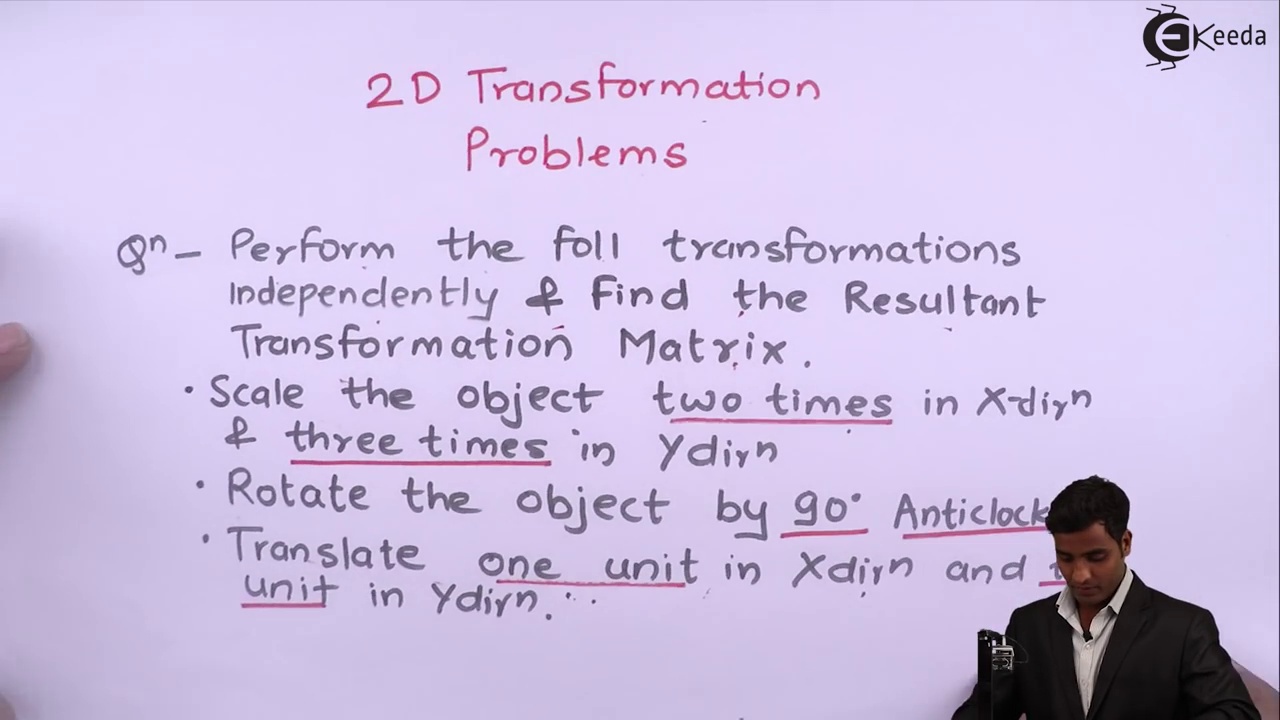 EKeeda
2D Transformation
Problems
Qn - Perform the foll transformations
Independently & Find the Resultant
Transformation Matrix.
• Scale the object two times in X-dirn
& three times in Ydirn
• Rotate the object by 90° Anticlock
• Translate one unit in Xdirn and
unit in Ydirn.